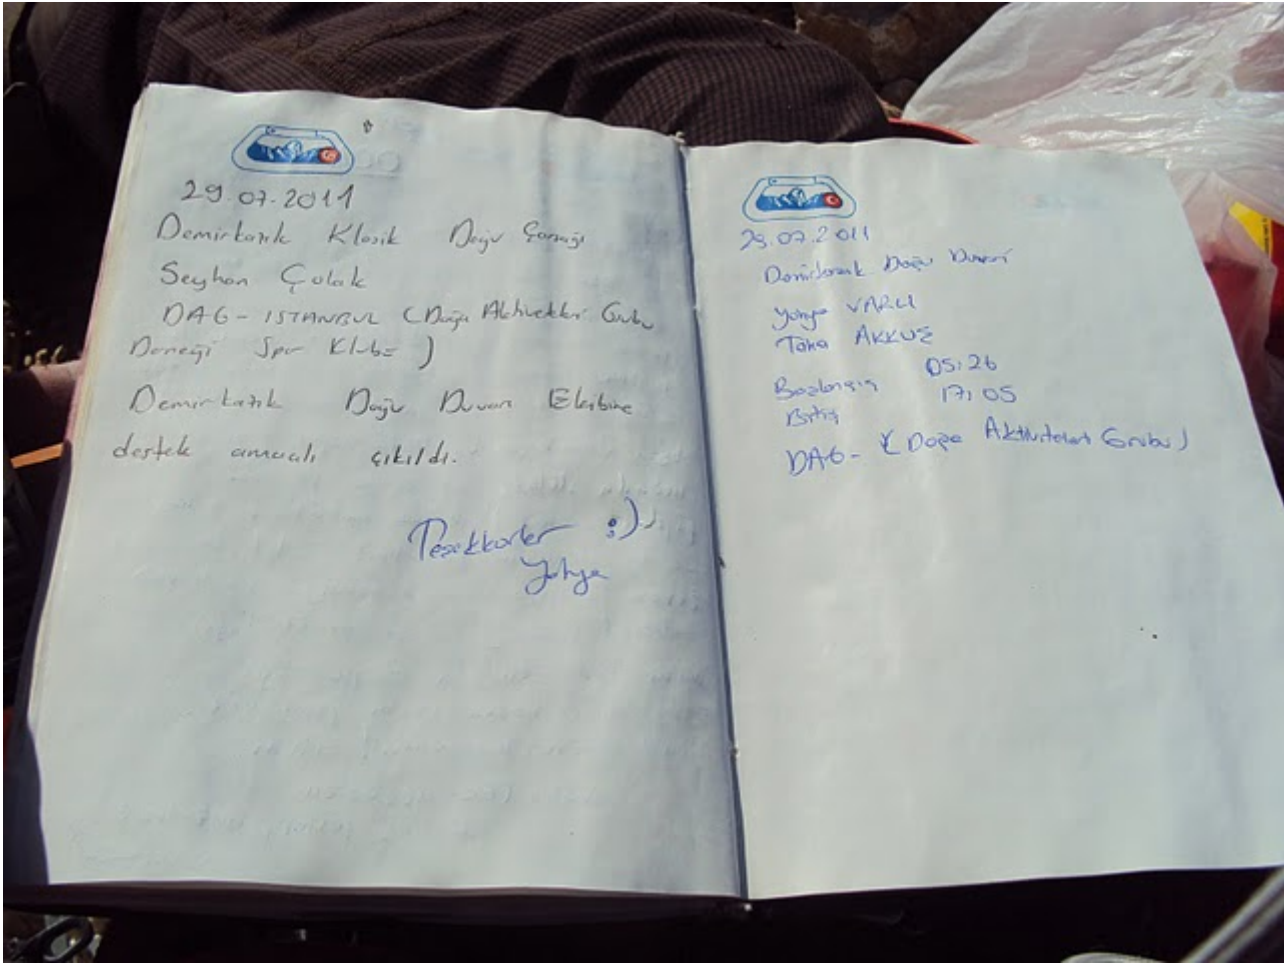 29.07.2011
Demirkazık Klasik Doğu Çarşağı
Seyhan Çolak
DAG - ISTANBUL (Doğa Aktiviteleri Grubu
Derneği Spor Klubü)
Demirkazık Doğu Duvarı Ekibine
destek amaçlı çıkıldı.
Teşekkürler :)
Yahya
29.07.2011
Demirkazık Doğu Duvarı
Yahya VARLI
Taha AKKUŞ
Başlangıç 05:26
Bitiş 17:05
DAG - (Doğa Aktiviteleri Grubu)